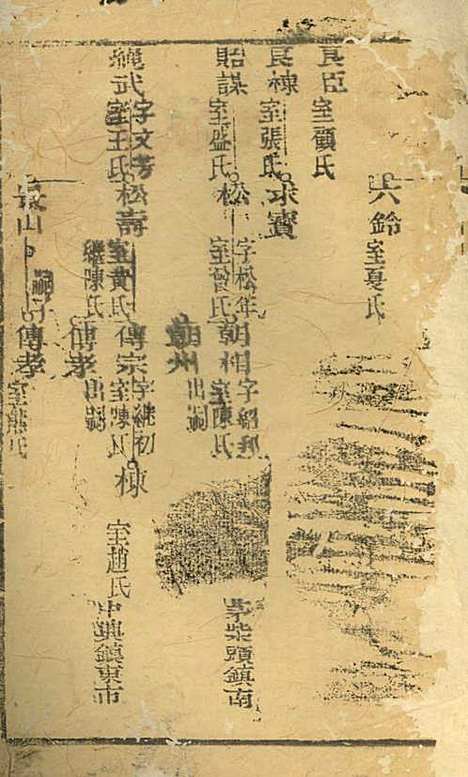 六鈴 室夏氏
良臣 室顧氏
良棟 室張氏 求寶
貽謀 室盛氏 松 字松年 室曾氏 朝 室陳氏 茅柴頭鎮南
出嗣
繩武 字文芳 室王氏 松壽 室黃氏 繼陳氏 傳宗 字繼初 室陳氏 棟 室趙氏 中興鎮東市
傳孝 出嗣
山 嗣子 傳孝 室熊氏